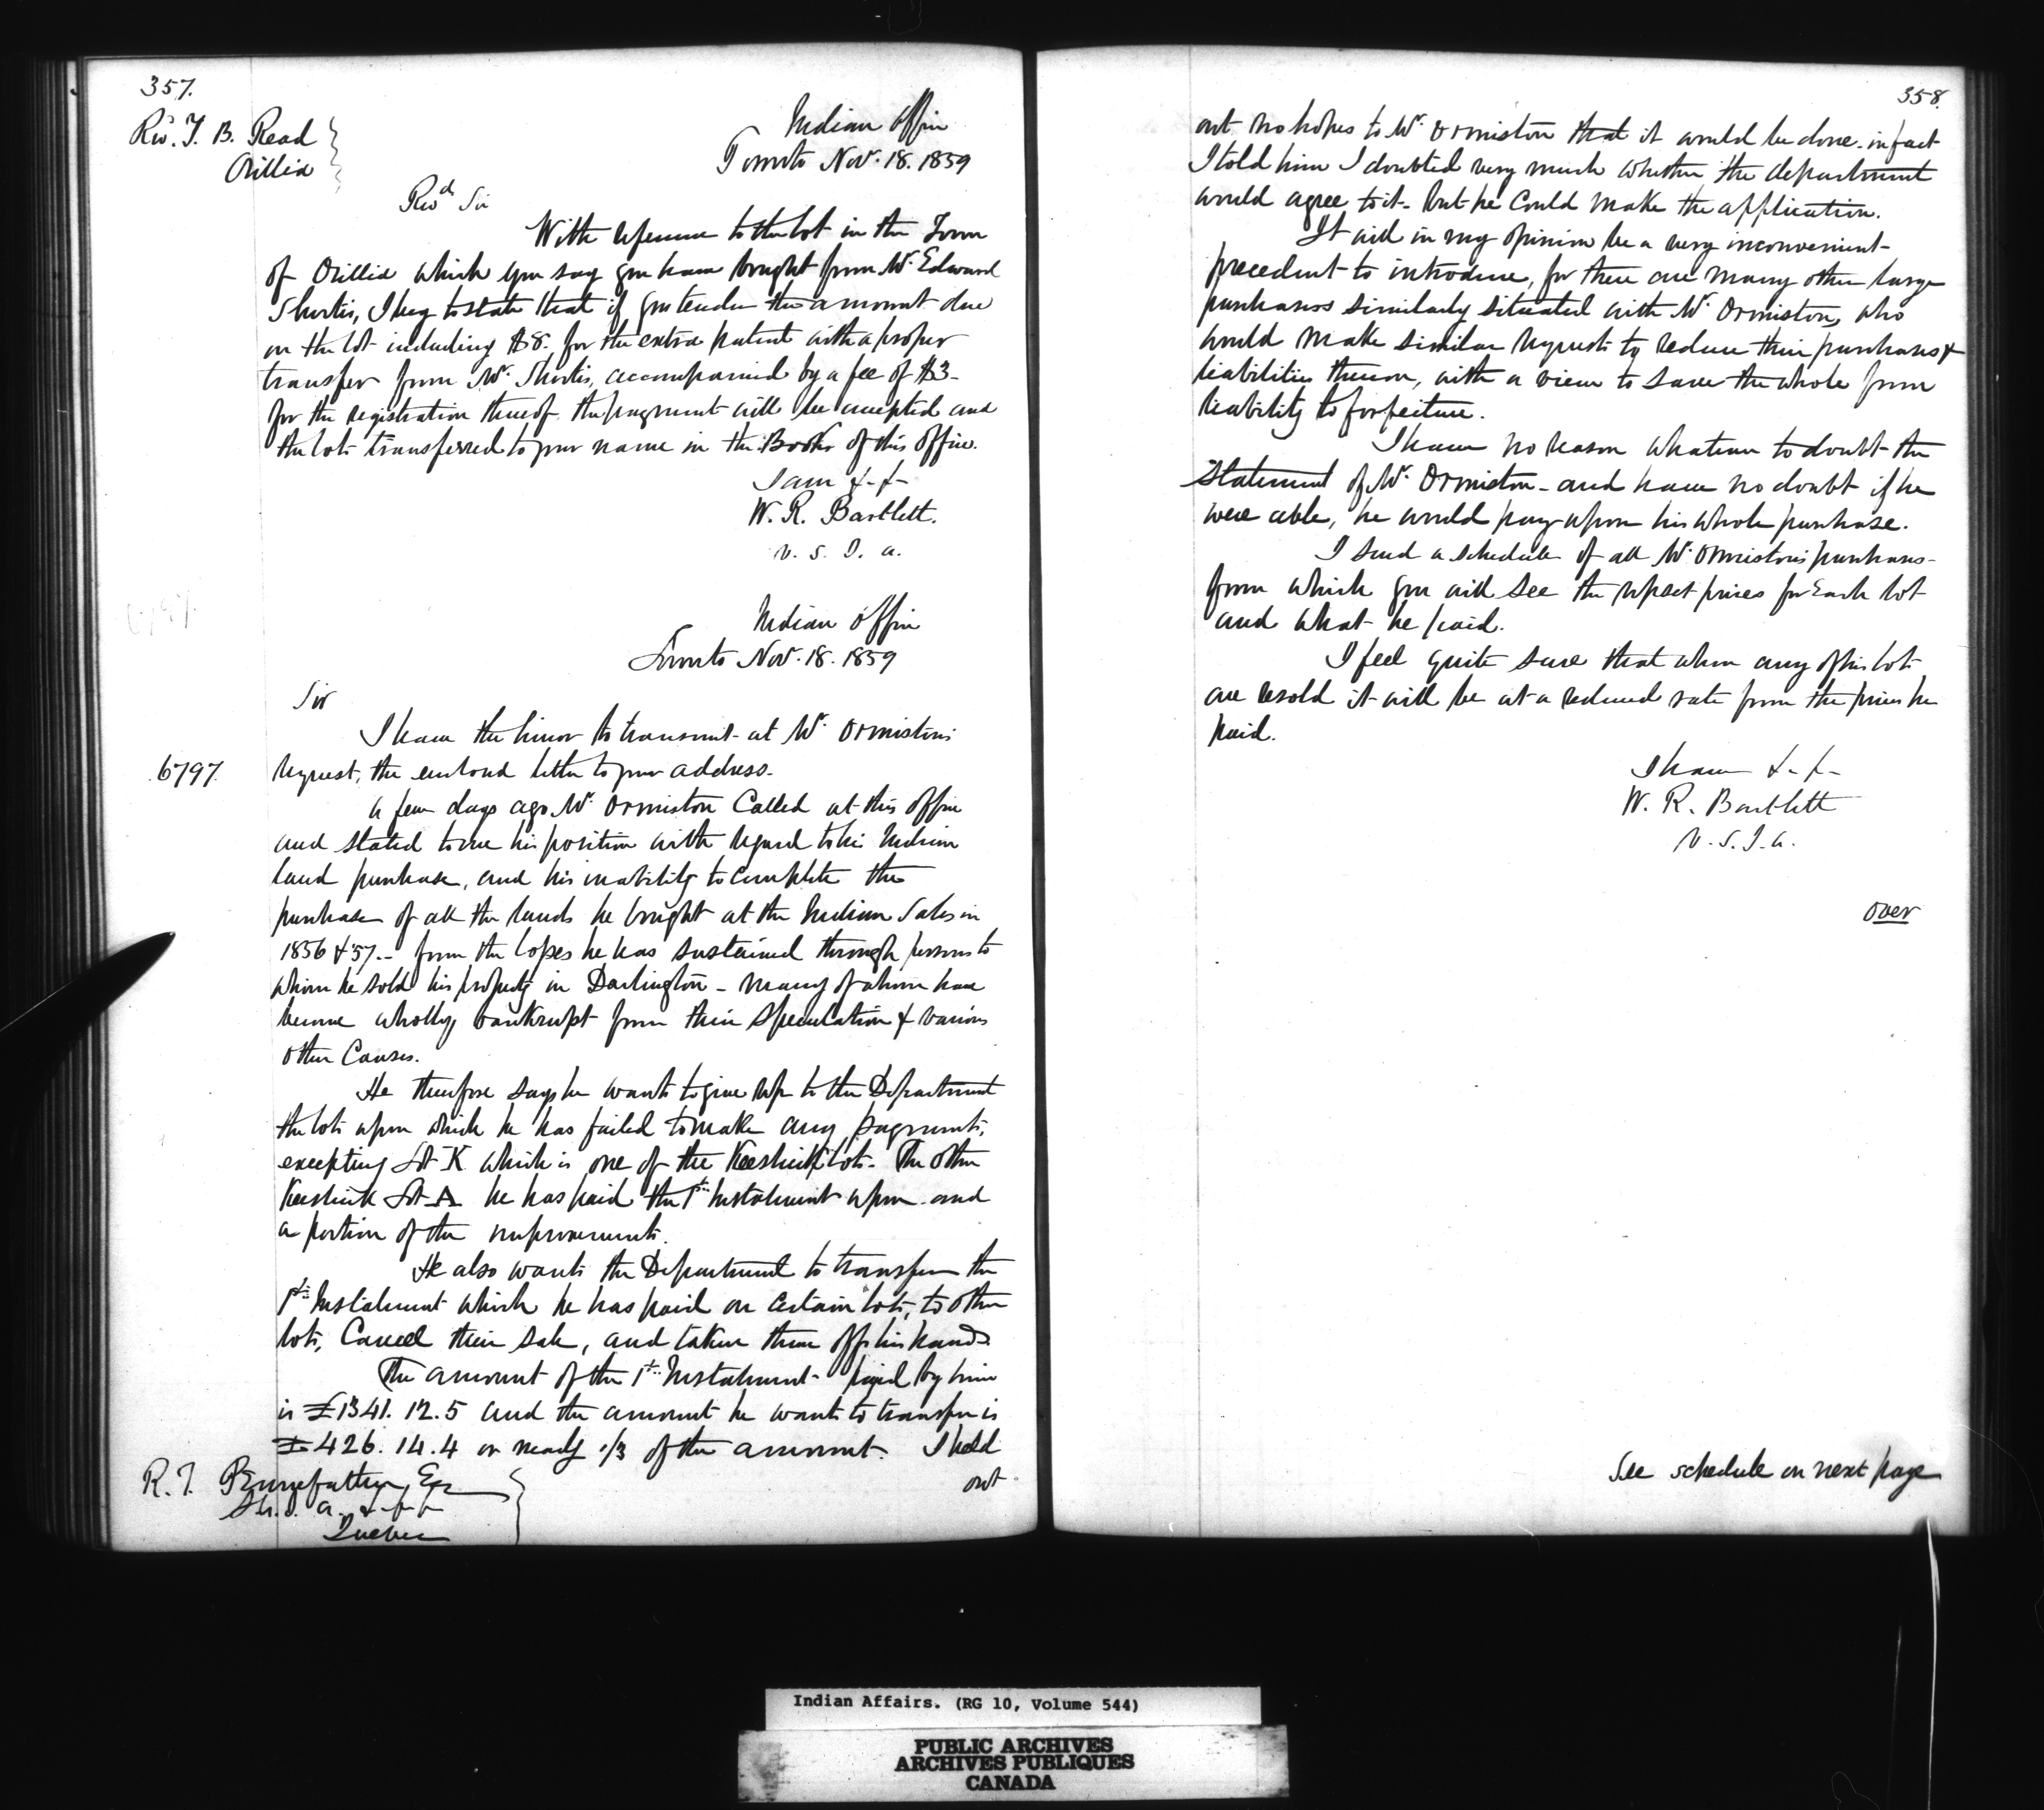 357.
Rev. T. B. Read
Orillia
Indian Office
Toronto Nov. 18. 1859
Revd Sir
With reference to the lot in the Town
of Orillia which you say you have bought from Mr. Edward
Shortis, I beg to state that if you tender the amount due
on the lot including $8. for the extra patent with a proper
transfer from Mr. Shortis, accompanied by a fee of $3-
for the registration thereof the payment will be accepted and
the lots transferred to your name in the Books of this Office.
I am &-&-
W. R. Bartlett.
V. S. I. A.
Indian Office
Toronto Nov. 18. 1859
Sir
I have the honor to transmit at Mr. Ormiston's
6797. request, the enclosed letter to your address.
A few days ago Mr. Ormiston Called at this Office
and stated to me his position with regard to his Indian
land purchase, and his inability to complete the
purchase of all the lands he bought at the Indian Sales in
1856 & '57 - from the losses he has sustained through persons to
whom he sold his property in Darlington - many of whom have
become wholly bankrupt from their speculation & various
other Causes.
He therefore says he wants to give up to the Department
the lots upon which he has failed to make any payments,
excepting Lot K which is one of the Keeshick Lots. The other
Keeshick Lot A he has paid the 1st Instalment upon and
a portion of the improvements.
He also wants the Department to transfer the
1st Instalment which he has paid on certain lots, to other
lots, Cancel their sale, and taken them off his hands
The amount of the 1st Instalment paid by him
is £1341. 12. 5 and the amount he wants to transfer is
£426. 14. 4 or nearly 1/3 of the amount. I held
out
R. T. Pennefather, Esq
S. I. A. &-&-&
Quebec
358.
out no hopes to Mr. Ormiston that it would be done - in fact
I told him I doubted very much whether the department
would agree to it - but he could make the application.
It will in my opinion be a very inconvenient
precedent to introduce, for there are many other large
purchasers similarly situated with Mr. Ormiston, who
would make similar requests to reduce their purchases &
liabilities thereon, with a view to save the whole from
liability to forfeiture.
I have no reason whatever to doubt the
statement of Mr. Ormiston - and have no doubt if he
were able, he would pay upon his whole purchase.
I send a schedule of all Mr. Ormistons purchases -
from which you will see the upset prices for Each lot
and what he paid.
I feel quite sure that when any of his lots
are resold it will be at a reduced rate from the prices he
paid.
I have &-&-
W. R. Bartlett
V. S. I. A.
over
See schedule on next page
Indian Affairs. (RG 10, Volume 544)
PUBLIC ARCHIVES
ARCHIVES PUBLIQUES
CANADA